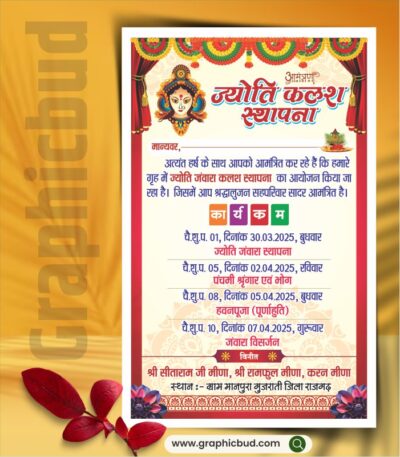 Graphicbud
आमंत्रण
ज्योति कलश
स्थापना
मान्यवर,
अत्यंत हर्ष के साथ आपको आमत्रित कर रहे हैं कि हमारे
गृह में ज्योति जंवारा कलश स्थापना का आयोजन किया जा
रहा है। जिसमें आप श्रद्धालुजन सहपरिवार सादर आमत्रित है।
कार्यकम
चै.शु.प. 01, दिनांक 30.03.2025, बुधवार
ज्योति जंवारा स्थापना
चै.शु.प. 05, दिनांक 02.04.2025, रविवार
पंचमी श्रृंगार एवं भोग
चै.शु.प. 08, दिनांक 05.04.2025, बुधवार
हवनपूजा (पूर्णाहुति)
चै.शु.प. 10, दिनांक 07.04.2025, गुरूवार
जंवारा विसर्जन
विनीत
श्री सीताराम जी मीणा, श्री रामफुल मीणा, करन मीणा
स्थान :- ग्राम मानपुरा गुजराती जिला राजगढ़
www.graphicbud.com